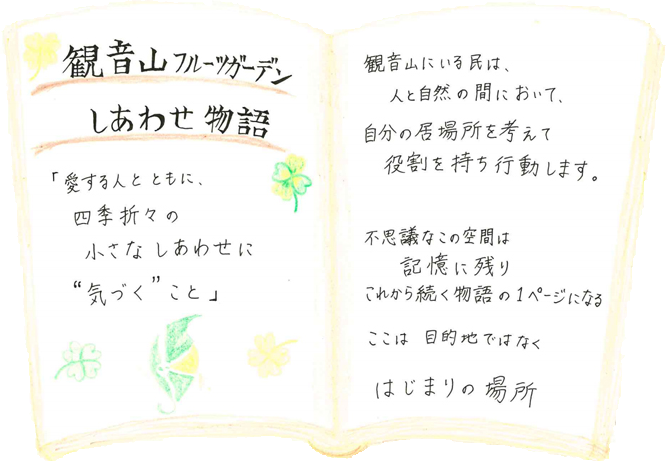 観音山フルーツガーデン
しあわせ物語
「愛する人とともに、
四季折々の
小さなしあわせに
“気づく”こと」
観音山にいる民は、
人と自然の間において、
自分の居場所を考えて
役割を持ち行動します。
不思議なこの空間は
記憶に残り
これから続く物語の1ページになる
ここは目的地ではなく
はじまりの場所